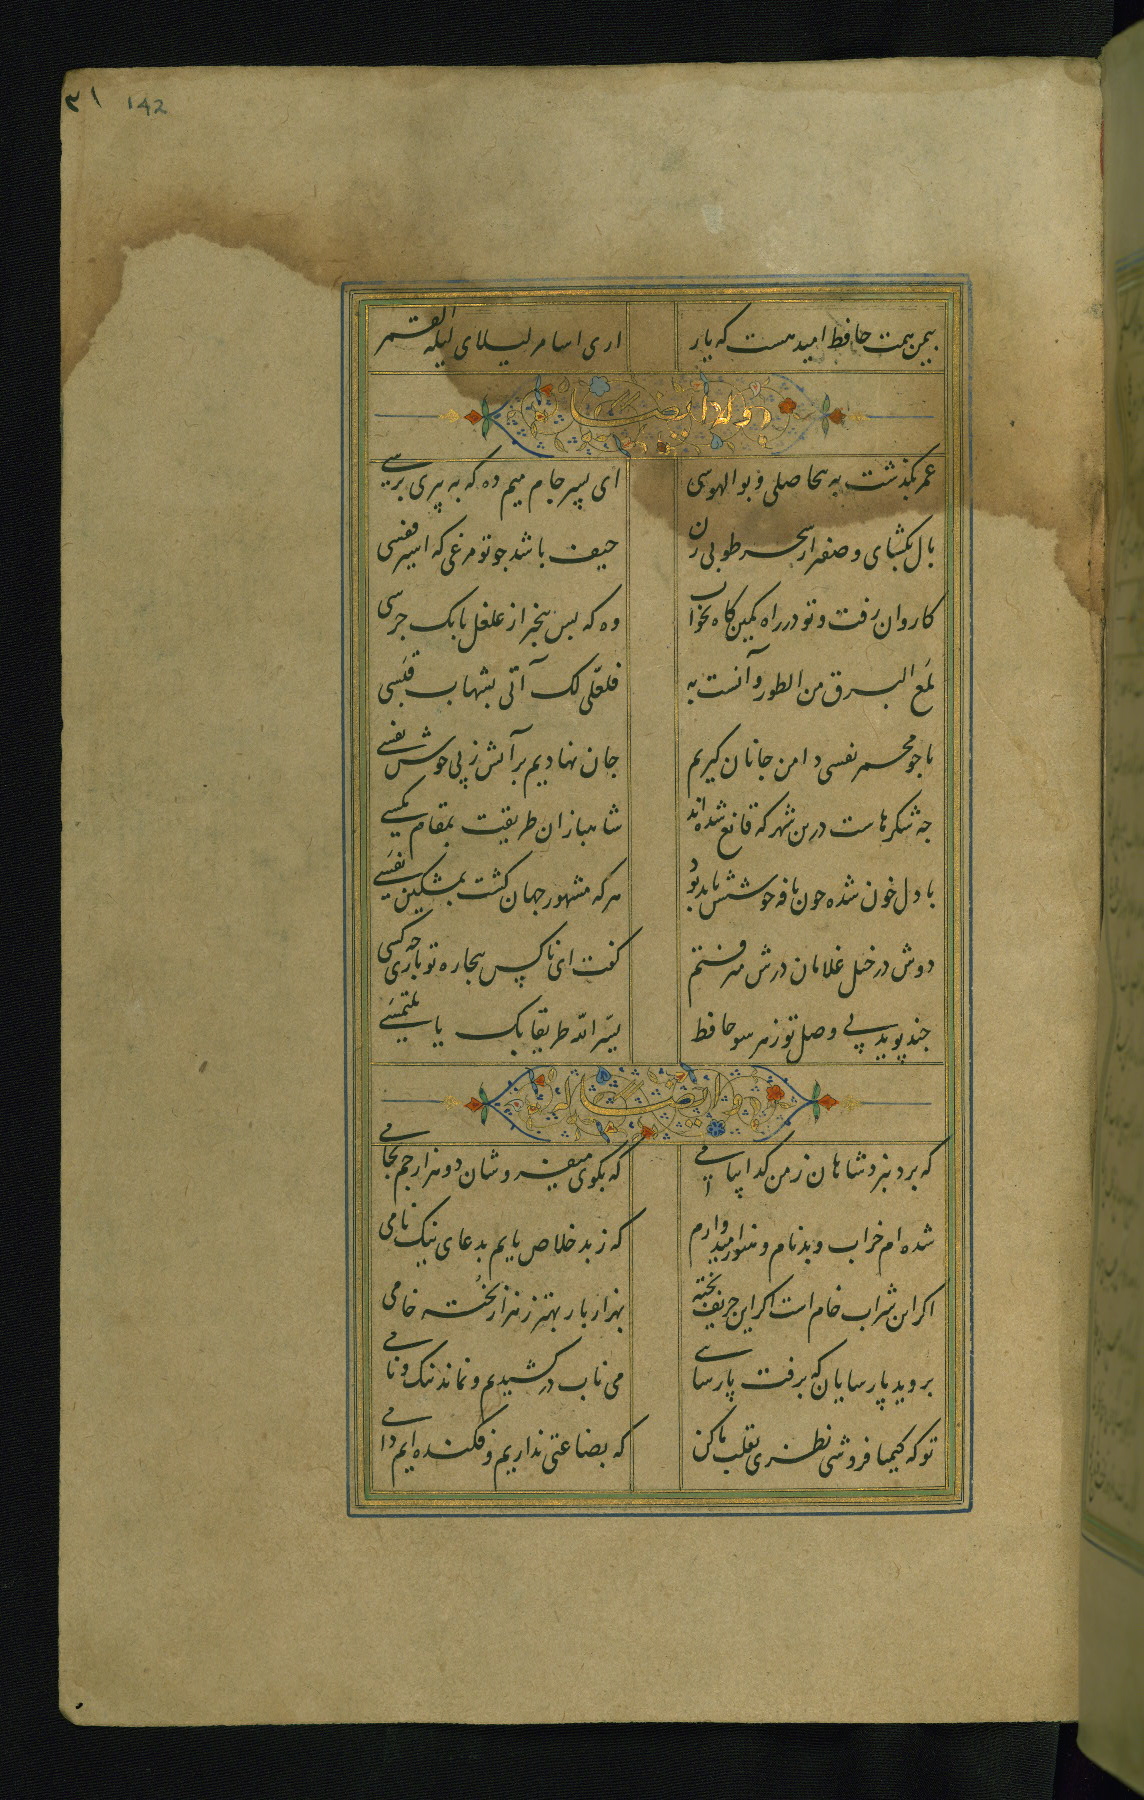 ۳۱ 142
بیمن همت حافظ امید هست که یار
اری اسامر لیلای لیله القمر
و له ایضا
عمر بکذشت به بیحاصلی و بوالهوسی
ای پسر جام میم ده که به پیری برسی
بال بکشای و صفیر از شجر طوبی زن
حیف باشد جو تو مرغی که اسیر قفسی
کاروان رفت و تو در راه کمین کاه بخواب
وه که بس بیخبر از غلغل بانک جرسی
لمع البرق من الطور و آنست به
فلعلّی لک آتی بشهاب قبسی
تا جو مجمر نفسی دامن جانان کیرم
جان نهادیم بر آتش ز پی خوش نفسی
جه شکرهاست درین شهر که قانع شده اند
شاهبازان طریقت بمقام مکسی
با دل خون شده جون نافه خوشش باید بود
هر که مشهور جهان کشت بمشکین نفسی
دوش در خیل غلامان درش میرفتم
کفت ای ناکس بیجاره تو باری جه کسی
جند پوید پی وصل تو ز هر سو حافظ
یسّر الله طریقا بک یا ملتمسی
و له ایضا
که برد بنزد شاهان ز من کدا پیامی
که بکوی میفروشان دو هزار جم بجامی
شده ام خراب و بدنام و هنوز امیدوارم
که ز بد خلاص یابم بدعای نیک نامی
اکر این شراب خام است اکر این حریف پخته
بهزار بار بهتر ز هزار پخته خامی
بروید پارسایان که برفت پارسایی
می ناب درکشیدیم و نماند ننک و نامی
تو که کیمیا فروشی نظری بقلب ما کن
که بضاعتی نداریم و فکنده ایم دامی